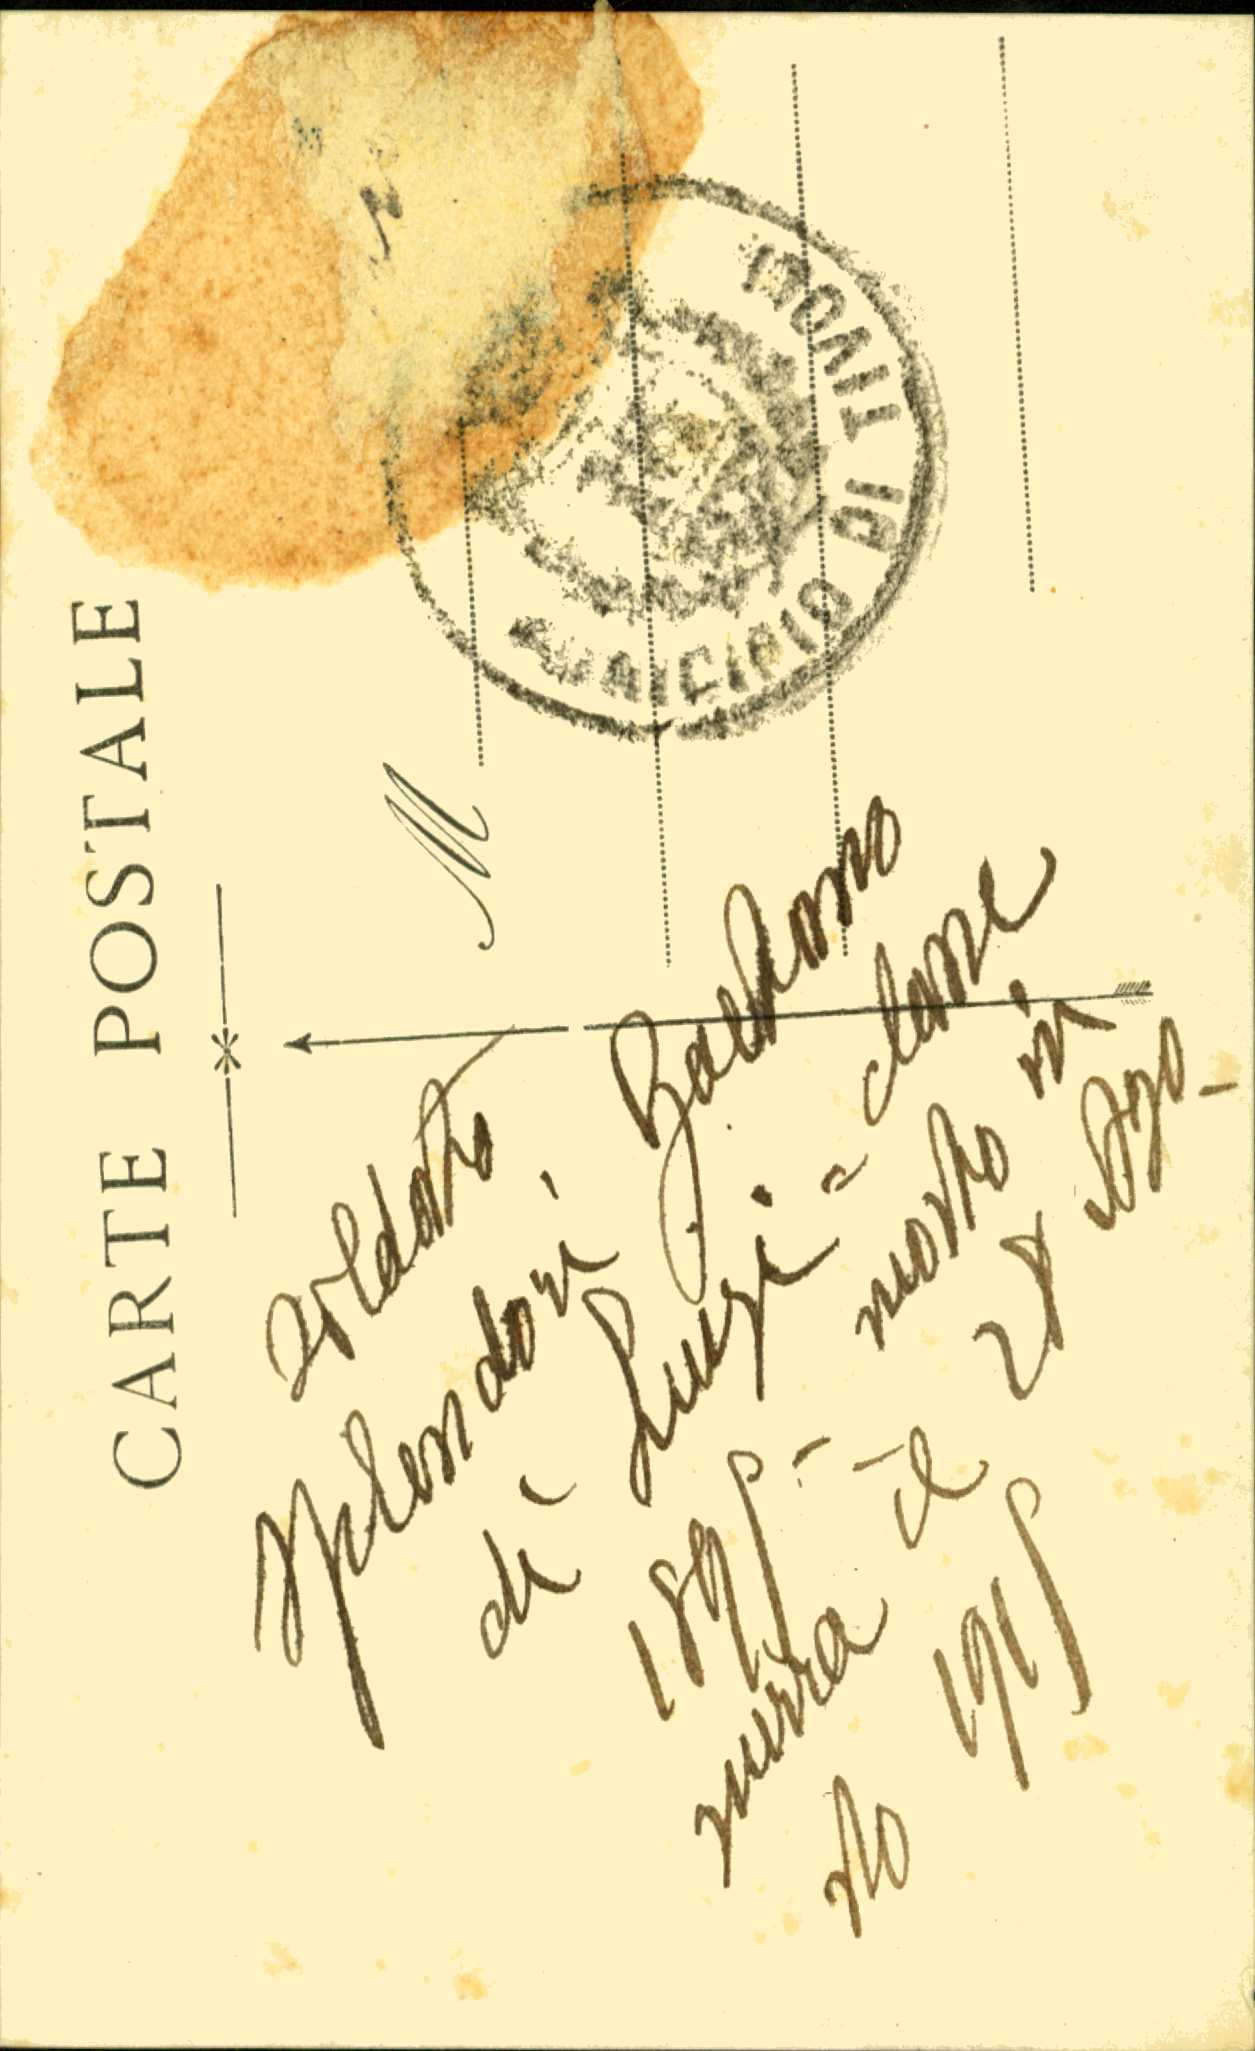 CARTE POSTALE
M
MUNICIPIO DI TIVOLI
Soldato
Splendori Gaetano
di Luigi = classe
1895 - morto in
guerra il 28 Ago-
sto 1915